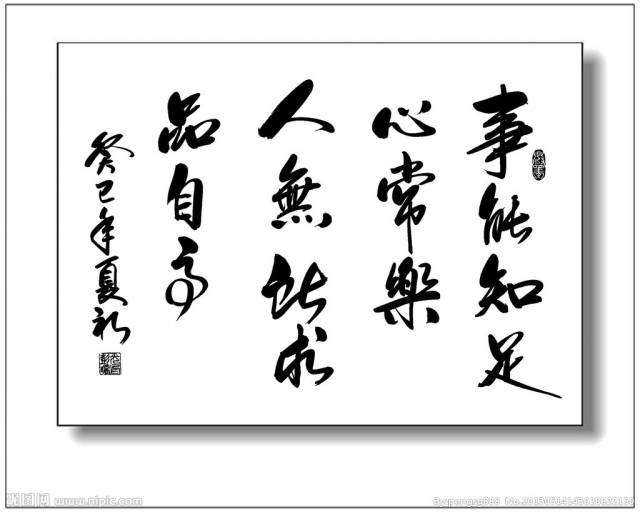 事能知足
心常樂
人無所求
品自高
癸巳年夏初
昵图网 www.nipic.com
By:pengsg888